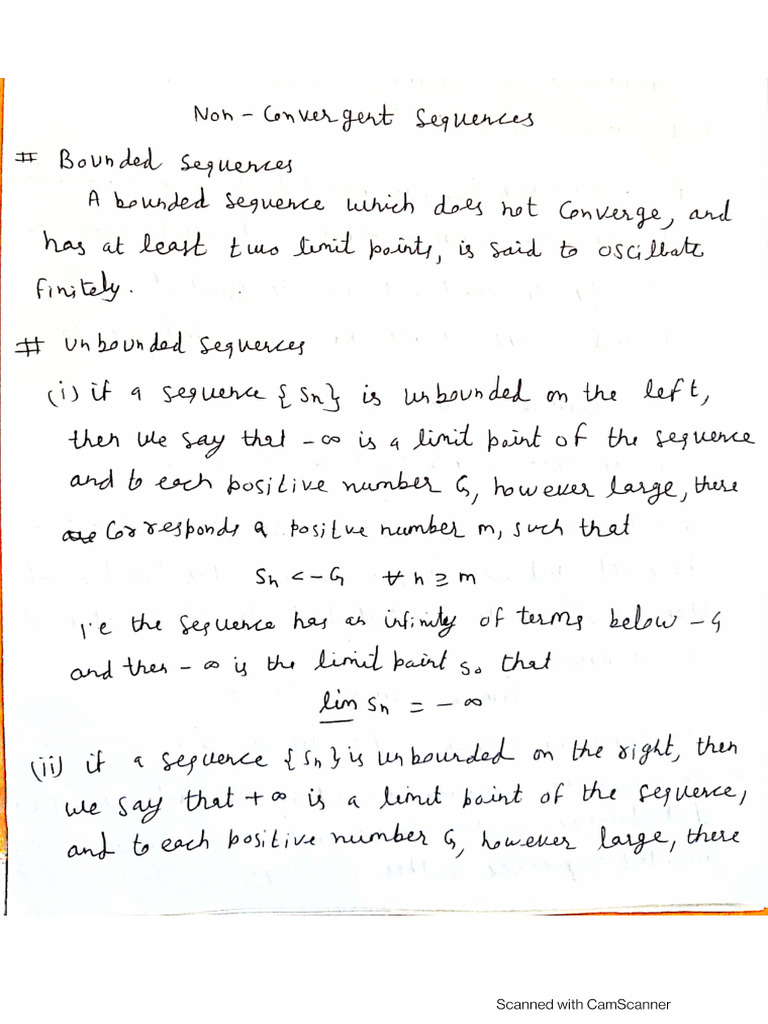 Non-Convergent Sequences
# Bounded Sequences
A bounded sequence which does not converge, and
has at least two limit points, is said to oscillate
finitely.
# Unbounded sequences
(i) if a sequence {Sn} is unbounded on the left,
then we say that -∞ is a limit point of the sequence
and to each positive number G, however large, there
corresponds a positve number m, such that
Sn < -G ∀ n ≥ m
i.e the sequence has an infinity of terms below -G
and then -∞ is the limit point so that
lim Sn = -∞
(ii) if a sequence {Sn} is unbounded on the right, then
we say that +∞ is a limit point of the sequence,
and to each positive number G, however large, there
Scanned with CamScanner